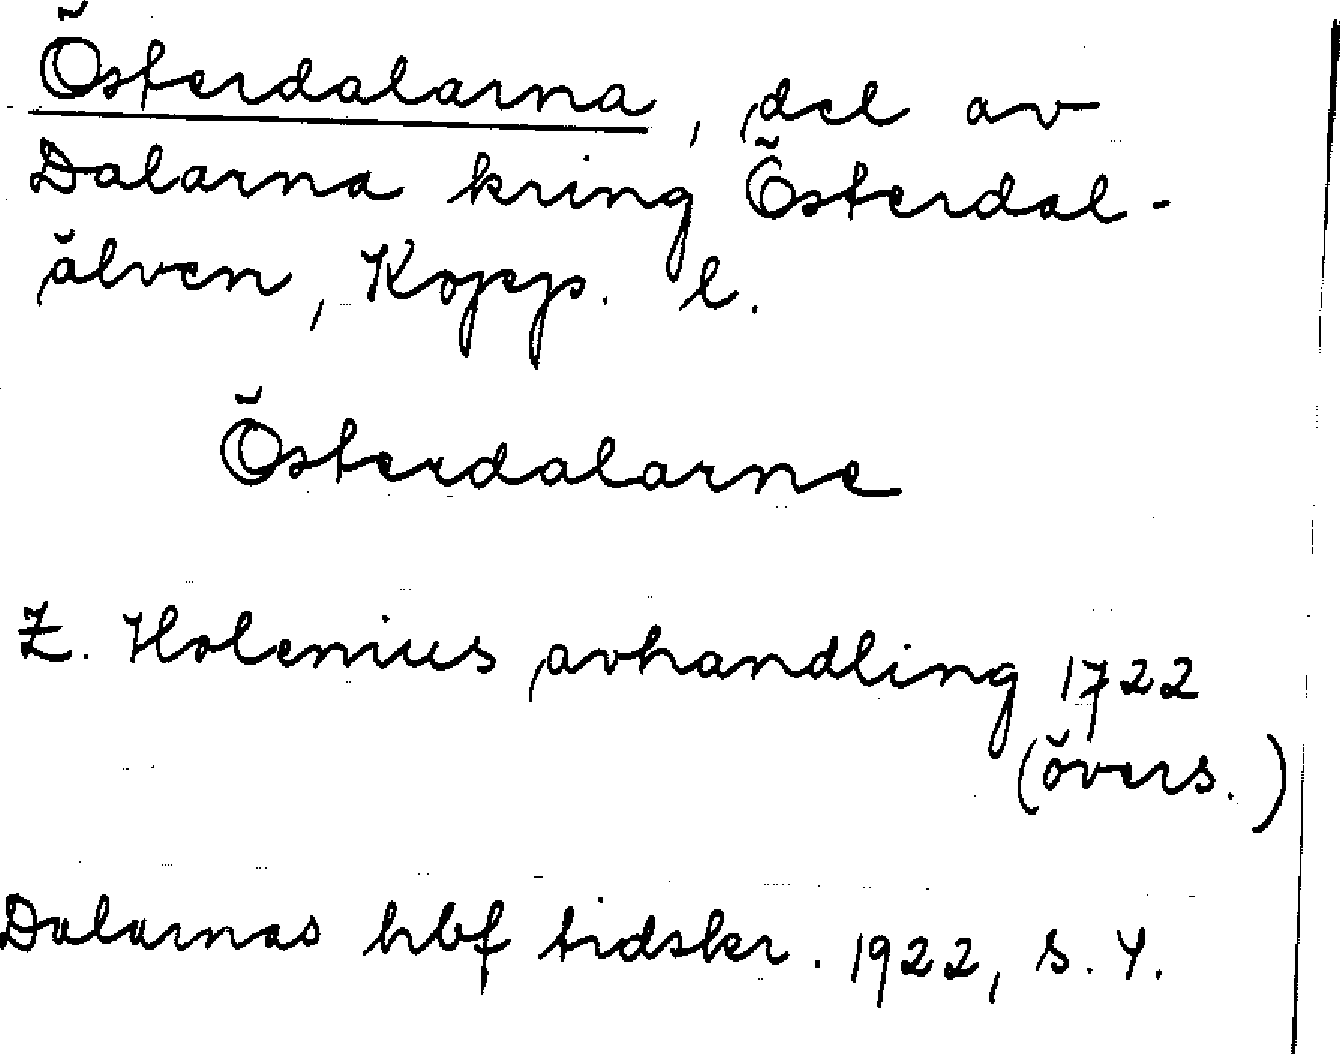 Österdalarna, del av
Dalarna kring Österdal-
älven, Kopp. l.
Österdalarne
Z. Holenius avhandling 1722
(övers.)
Dalarnas hbf tidskr. 1922, s. 4.